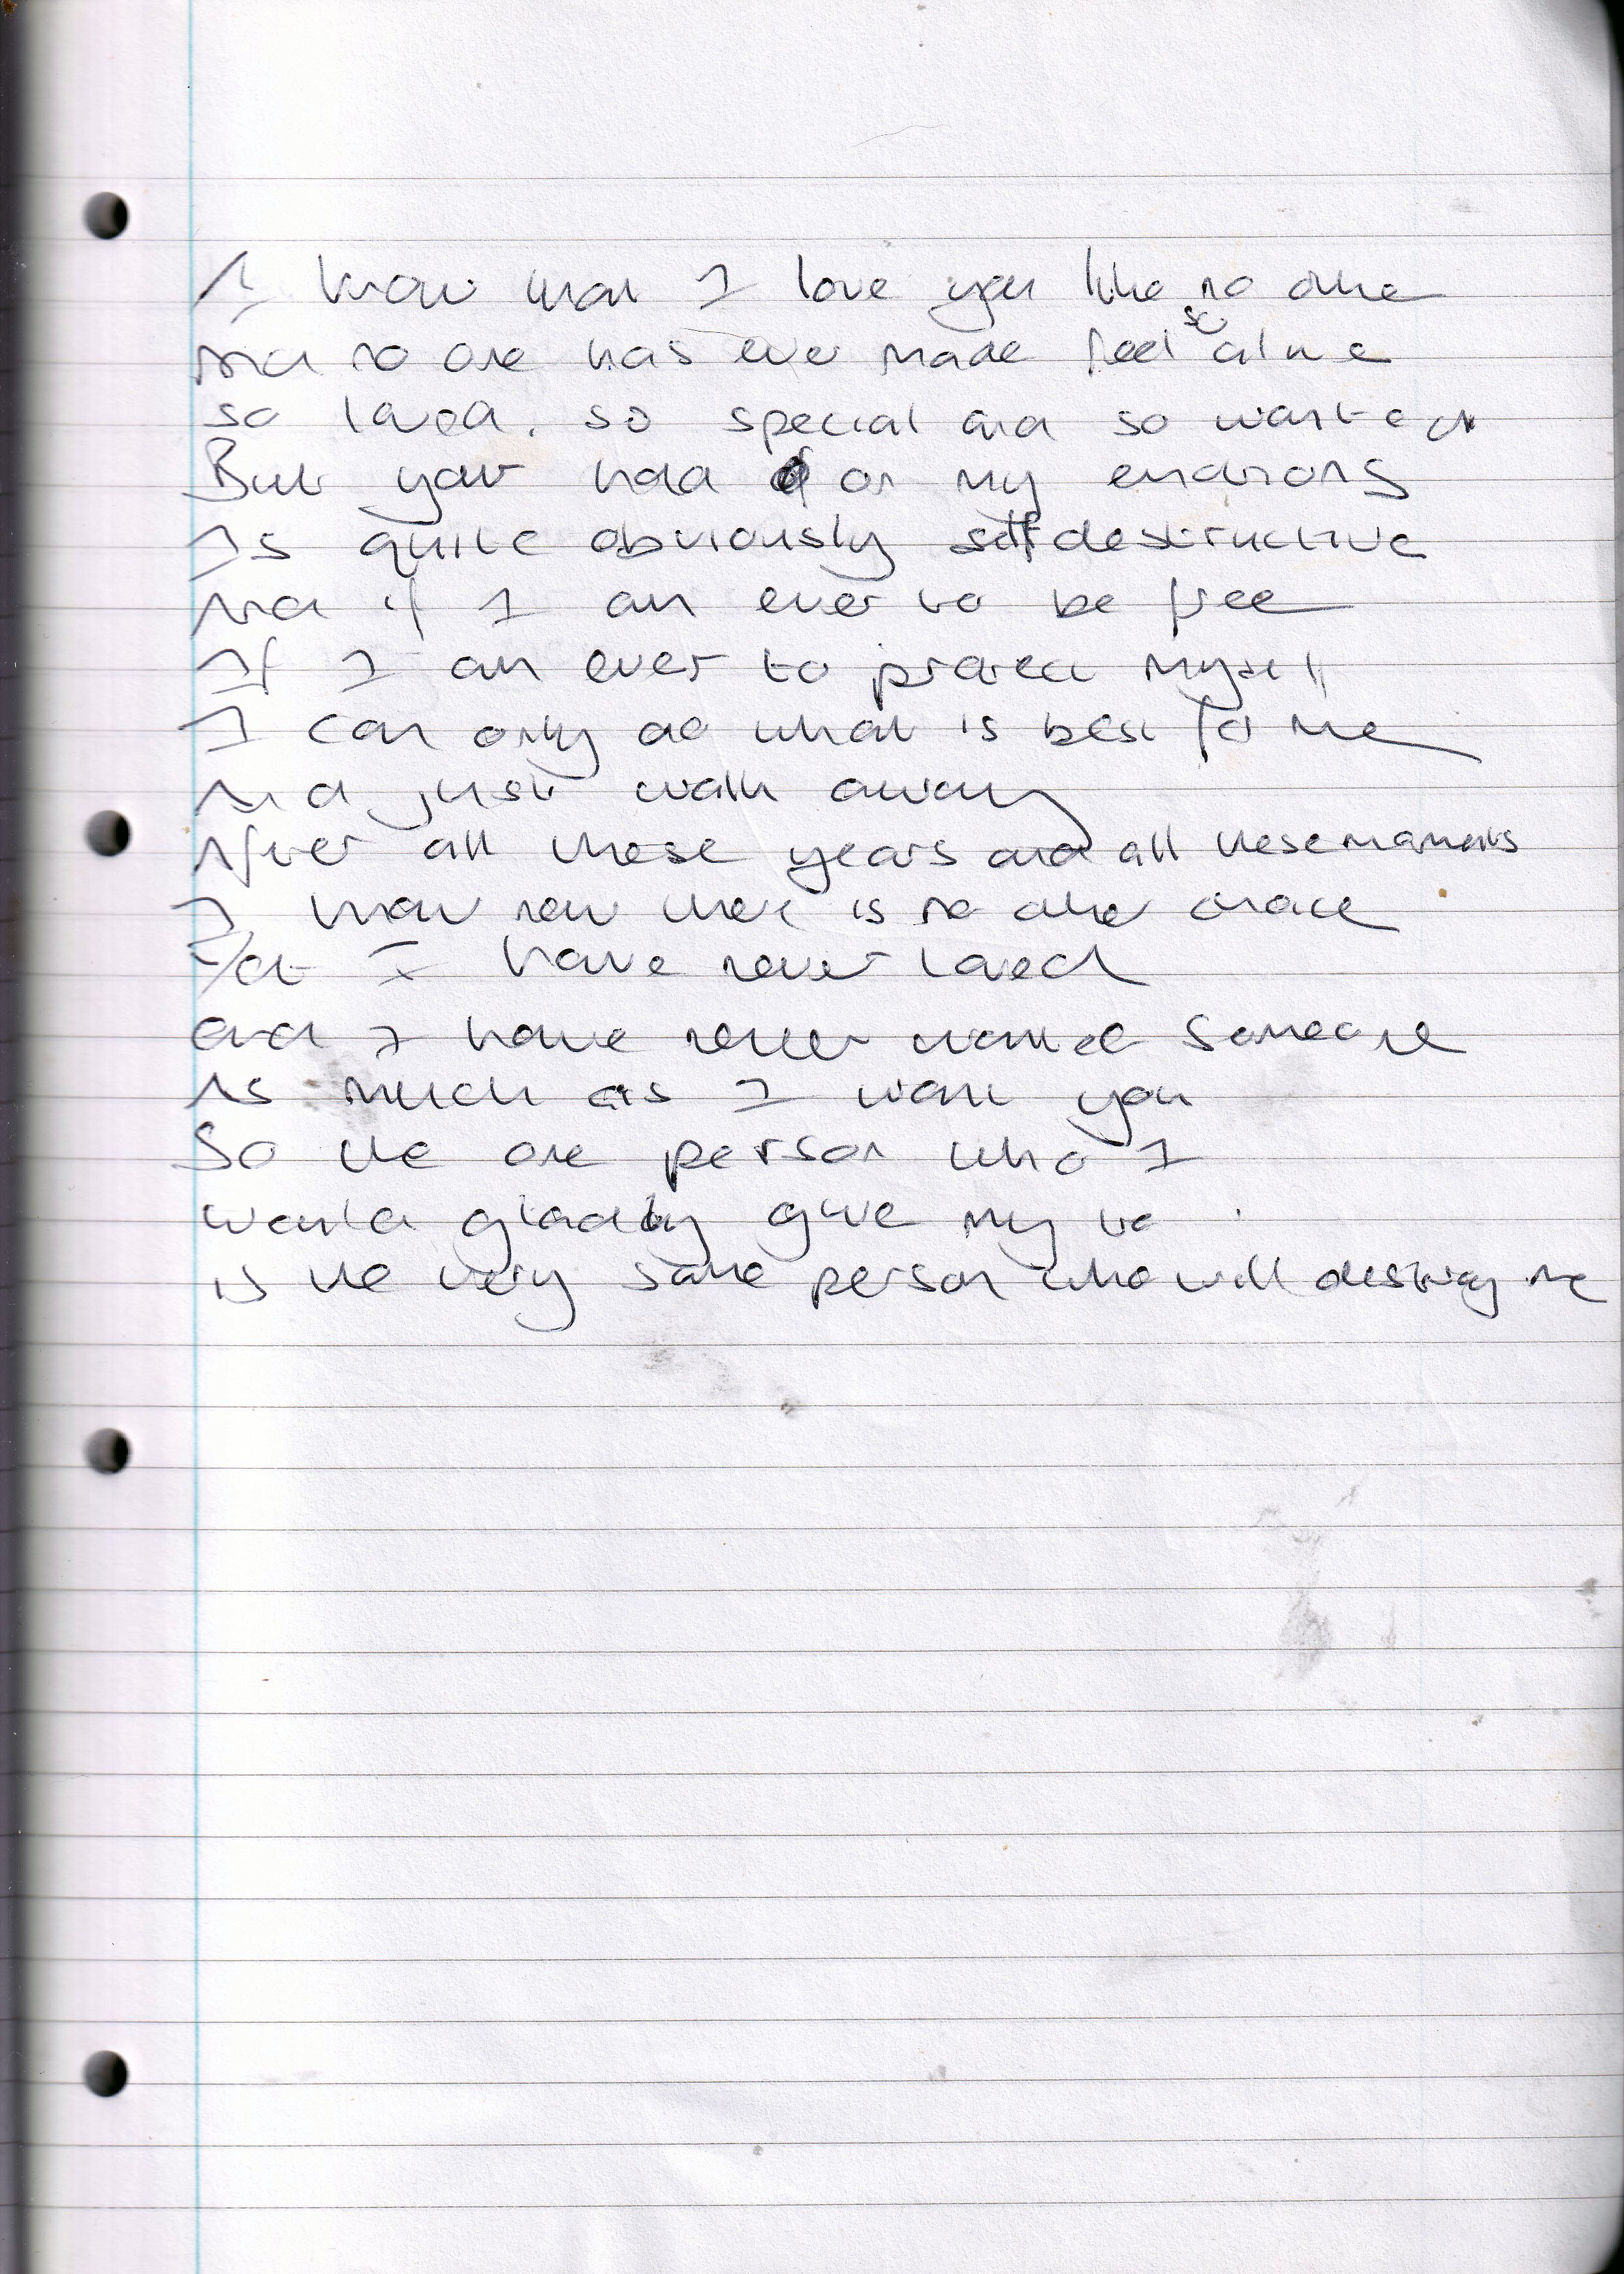 I know that I love you like no other
And no one has ever made feel so alive
so loved. so special and so wanted
But your hold on my emotions
Is quite obviously self destructive
And if I am ever to be free
If I am ever to protect myself
I can only do what is best for me
And just walk away
After all these years and all these moments
I know now there is no other choice
For I have never loved
and I have never wanted someone
As much as I want you
So the one person who I
would gladly give my to
is the very same person who will destroy me